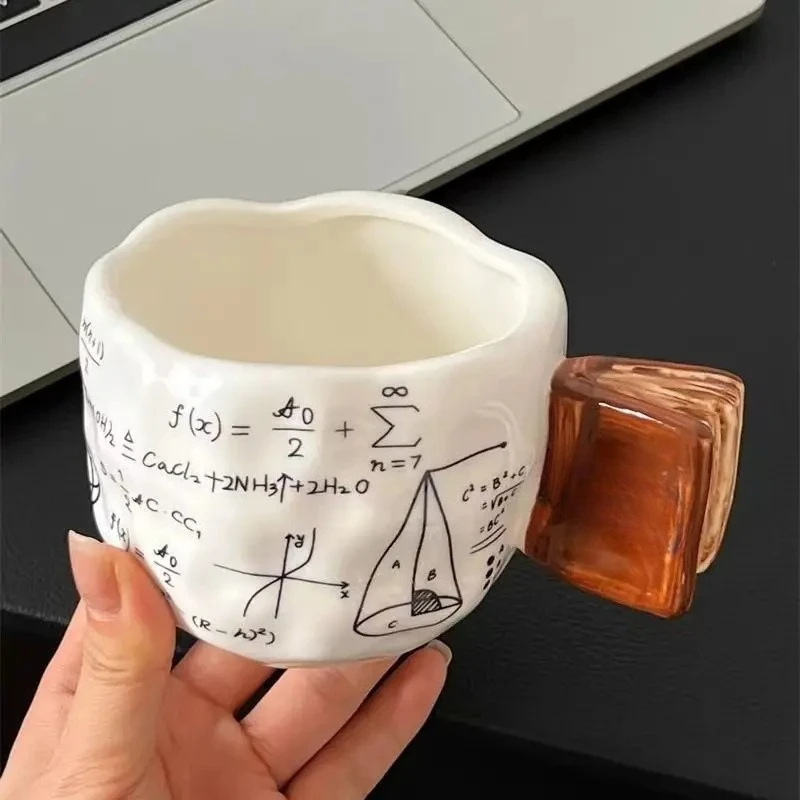 f(x) = A0/2 + ∞∑n=7
OH)2 ≜ CaCl2+2NH3↑+2H2O
C·CC1
f(x) = A0/2
y
x
(R-h)²)
A
B
C
C² = B²+C
=BC²